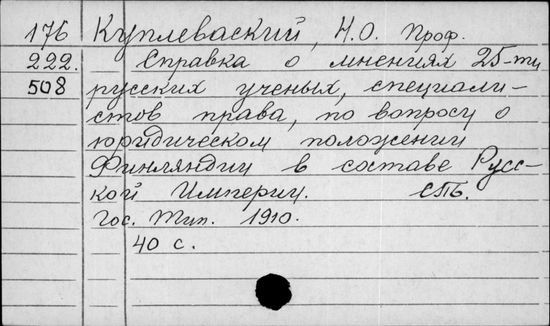 176 Куплеваский, Н.О. Проф.
222. Справка о мнениях 25-ти
508 русских ученых, специали-
стов права, по вопросу о
юридическом положении
Финляндии в составе Русс-
кой Империи. СПб.
Гос. Тип. 1910.
40 с.